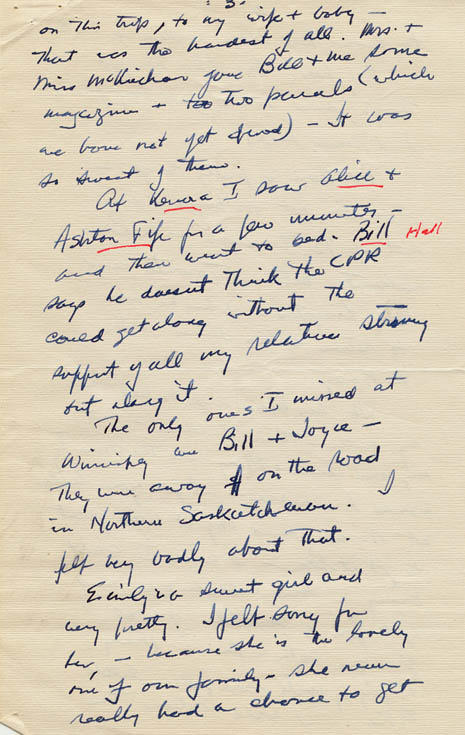 - 3 -
on this trip, to my wife + baby -
that was the hardest of all. Mrs. +
Miss McMicken gave Bill + me some
magazines + two parcels (which
we have not yet opened) - It was
so sweet of them.
At Kenora I saw Alice +
Ashton Fife for a few minutes -
and then went to bed. Bill Hall
says he doesn't think the CPR
could get along without the
support of all my relatives strung
out along it.
The only ones I missed at
Winnipeg were Bill + Joyce -
They were away on the road
in Northern Saskatchewan. I
felt very badly about that.
Emily is a sweet girl and
very pretty. I felt sorry for
her, - because she is the lonely
one of our family - she never
really had a chance to get